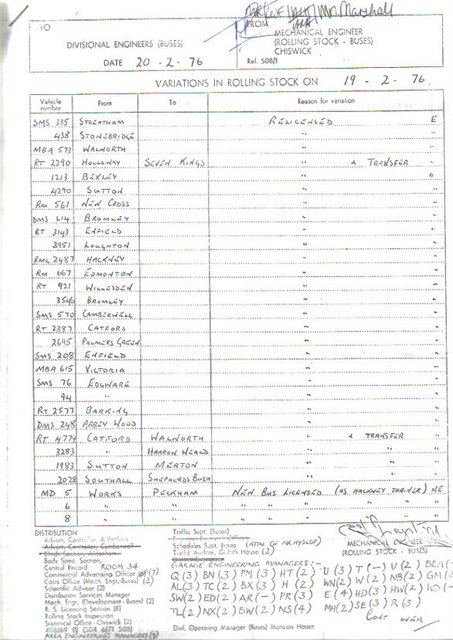 TO
FROM
DIVISIONAL ENGINEERS (BUSES)
MECHANICAL ENGINEER
(ROLLING STOCK - BUSES)
CHISWICK
DATE 20-2-76
Ref. 508/1
VARIATIONS IN ROLLING STOCK ON 19-2-76
Vehicle number From To Reason for variation
SMS 335 STREATHAM RELICENSED E
438 STONEBRIDGE " "
MBA 573 WALWORTH " "
RT 2290 HOLLOWAY SEVEN KINGS " & TRANSFER "
1213 BEXLEY " "
4290 SUTTON " "
RM 561 NEW CROSS " "
DMS 614 BROMLEY " "
RT 3143 ENFIELD " "
3951 LOUGHTON " "
RML 2487 HACKNEY " "
RM 667 EDMONTON " "
RT 921 WILLESDEN " "
3546 BROMLEY " "
SMS 570 CAMBERWELL " "
RT 2387 CATFORD " "
2695 PALMERS GREEN " "
SMS 208 ENFIELD " "
MBA 615 VICTORIA " "
SMS 76 EDGWARE " "
94 " " "
RT 2577 BARKING " "
DMS 248 ABBEY WOOD " "
RT 4774 CATFORD WALWORTH " & TRANSFER "
3283 " HARROW WEALD " " "
1983 SUTTON MERTON " " "
2028 SOUTHALL SHEPHERDS BUSH " " "
MD 5 WORKS PECKHAM NEW BUS LICENSED (AS HACKNEY TRAINER) NE
6 " " " " "
8 " " " " "
DISTRIBUTION
Body Spec. Section
Central Record ROOM 34
Commercial Advertising Officer
Costs Office (Mech. Eng. Buses) (2)
Scientific Adviser (2)
Distribution Services Manager
Mech. Engr. (Development-Buses) (2)
R. S. Licensing Section (8)
Rolling Stock Inspection
Statistical Office - Chiswick (2)
AREA ENGINEERING MANAGERS
Traffic Supt. (Buses)
Schedules Supt. Buses
GARAGE ENGINEERING MANAGERS:-
Q(3) BN(3) PM(3) HT(2) U(3) T(-) V(2)
AL(3) TC(2) BX(3) H(3) WN(2) W(2) NB(2)
SW(2) ED(2) AR(-) PR(3) E(4) HD(3) HW(2)
TL(2) NX(2) BW(2) NS(4) MH(2) SE(3) R(3)
CONT OVER
Div. Operating Manager (Buses) Mansion House
MECHANICAL ENGINEER
(ROLLING STOCK - BUSES)